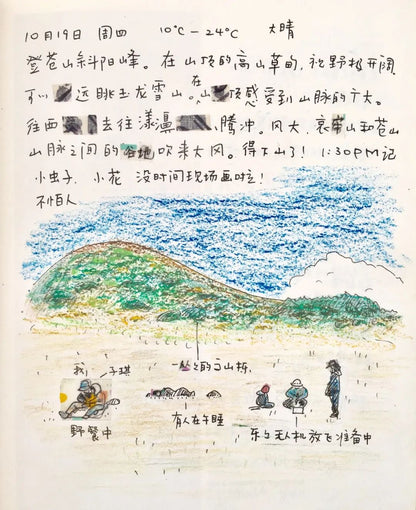 10月19日 周四 10°C－24°C 大晴
登苍山斜阳峰。在山顶的高山草甸，视野极开阔
可以远眺玉龙雪山。在山顶感受到山脉的广大。
往西去往漾濞 腾冲。风大，哀牢山和苍山
山脉之间的谷地吹来大风。得下山了！1:30PM记
小虫子，小花 没时间现场画啦！
不怕人
一丛丛的高山栎
我 子琪
野餐中
有人在午睡
无人机放飞准备中